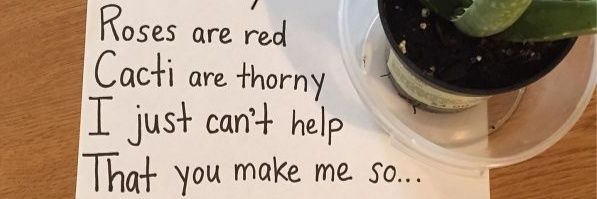 Roses are red
Cacti are thorny
I just can't help
That you make me so...